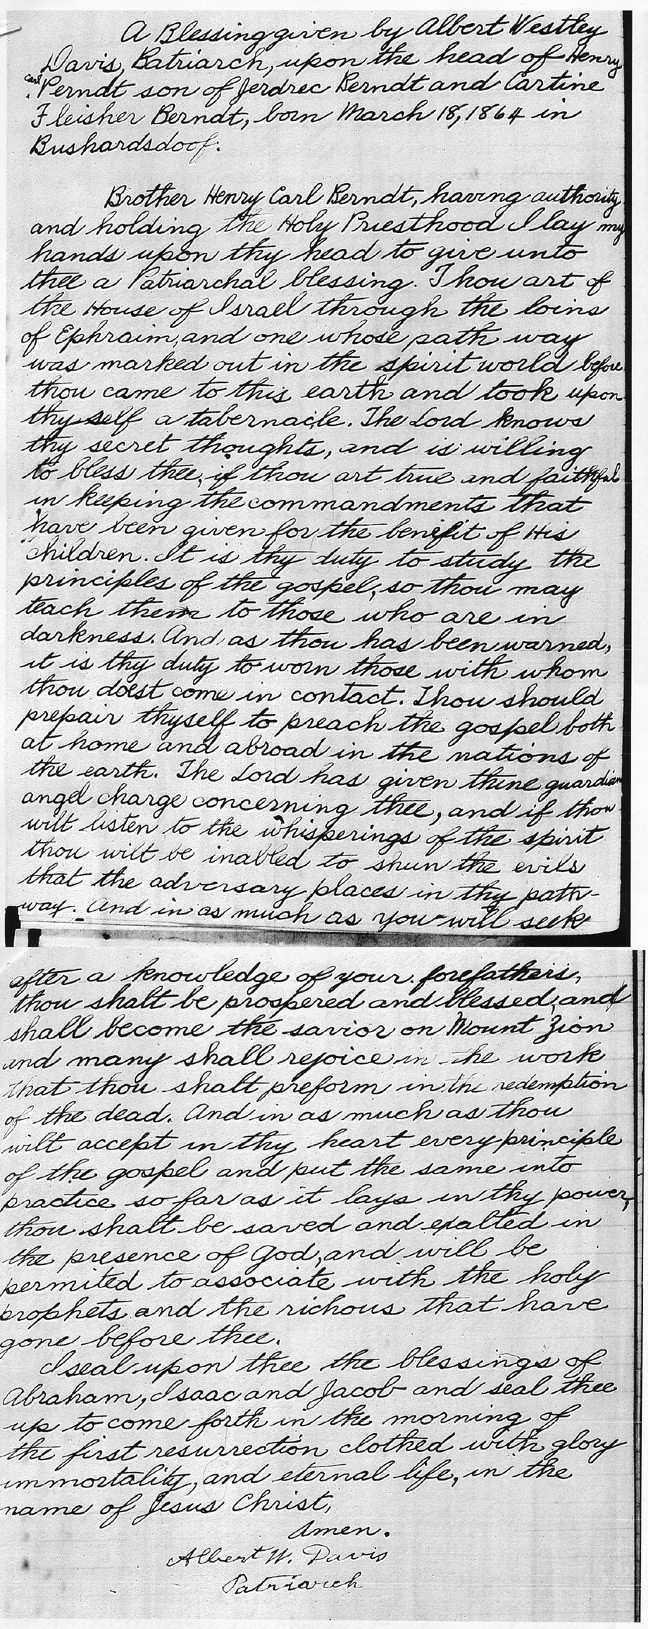 A Blessing given by Albert Westley
Davis, Patriarch, upon the head of Henry
Carl Perndt son of Jerdrec Berndt and Cartine
Fleisher Berndt, born March 18, 1864 in
Bushardsdoof.
Brother Henry Carl Berndt, having authority
and holding the Holy Priesthood I lay my
hands upon thy head to give unto
thee a Patriarchal blessing. Thou art of
the House of Israel through the loins
of Ephraim, and one whose path way
was marked out in the spirit world before
thou came to this earth and took upon
thy self a tabernacle. The Lord knows
thy secret thoughts, and is willing
to bless thee, if thou art true and faithful
in keeping the commandments that
have been given for the benefit of His
children. It is thy duty to study the
principles of the gospel, so thou may
teach them to those who are in
darkness. And as thou has been warned,
it is thy duty to worn those with whom
thou doest come in contact. Thou should
prepair thyself to preach the gospel both
at home and abroad in the nations of
the earth. The Lord has given thine guardian
angel charge concerning thee, and if thou
wilt listen to the whisperings of the spirit
thou wilt be inabled to shun the evils
that the adversary places in thy path-
way. And in as much as you will seek
after a knowledge of your forefathers,
thou shalt be prospered and blessed, and
shall become the savior on Mount Zion
and many shall rejoice in the work
that thou shalt preform in the redemption
of the dead. And in as much as thou
wilt accept in thy heart every principle
of the gospel and put the same into
practice so far as it lays in thy power,
thou shalt be saved and exalted in
the presence of God, and will be
permited to associate with the holy
prophets and the richous that have
gone before thee.
I seal upon thee the blessings of
Abraham, Isaac and Jacob and seal thee
up to come forth in the morning of
the first resurrection clothed with glory
immortality, and eternal life, in the
name of Jesus Christ,
Amen.
Albert W. Davis
Patriarch